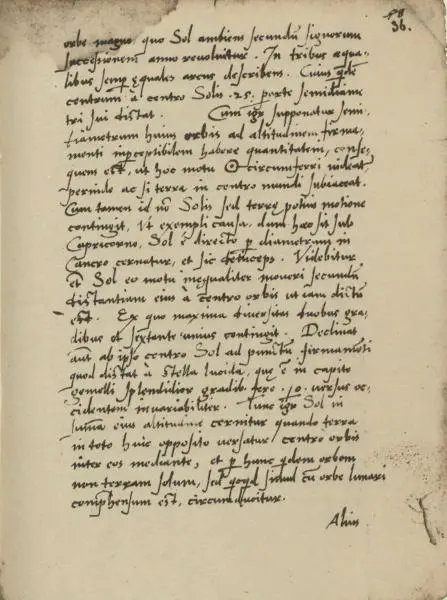 36.
orbe magno, quo Sol ambiens secundũ signorum
successionem anno revolvitur. In tribus æqua-
libus semp ęquales arcus describens. Cuius qdē
centrum à centro Solis .25. parte semidiame
tri sui distat. Cum igr supponatur semi-
diametrum huius orbis ad altitudinem firma-
menti inpceptibilem habere quantitatem, conse-
quens est, ut hoc motu ☉ circumferri videat
perinde ac si terra in centro mundi subiaceat.
Cum tamen id nõ Solis sed terrę potius motione
contingit, Ut exempli causa, dum hæc sit sub
Capricorno, Sol è directo p diametrum in
Cancro cernatur, et sic deinceps. Videbitur
et Sol eo motu inęqualiter moveri secundũ
distantiam eius à centro orbis ut iam dictũ
est. Ex quo maxima diversitas duobus gra
dibus et sextante unius contingit. Declinat
aut ab ipso centro Sol ad punctũ firmamẽti
quod distat à stella lucida, quę ẽ in capite
gemelli splendidior gradib. fere .10. versus oc-
cidentem invariabiliter. Tunc igr Sol in
summa eius altitudine cernitur quando terra
in toto huic opposito versatur centro orbis
inter eos mediante, et p hunc qdem orbem
non terram solum, sed qcqd simul cũ orbe lunari
comphensum est, circumducitur.
Alius